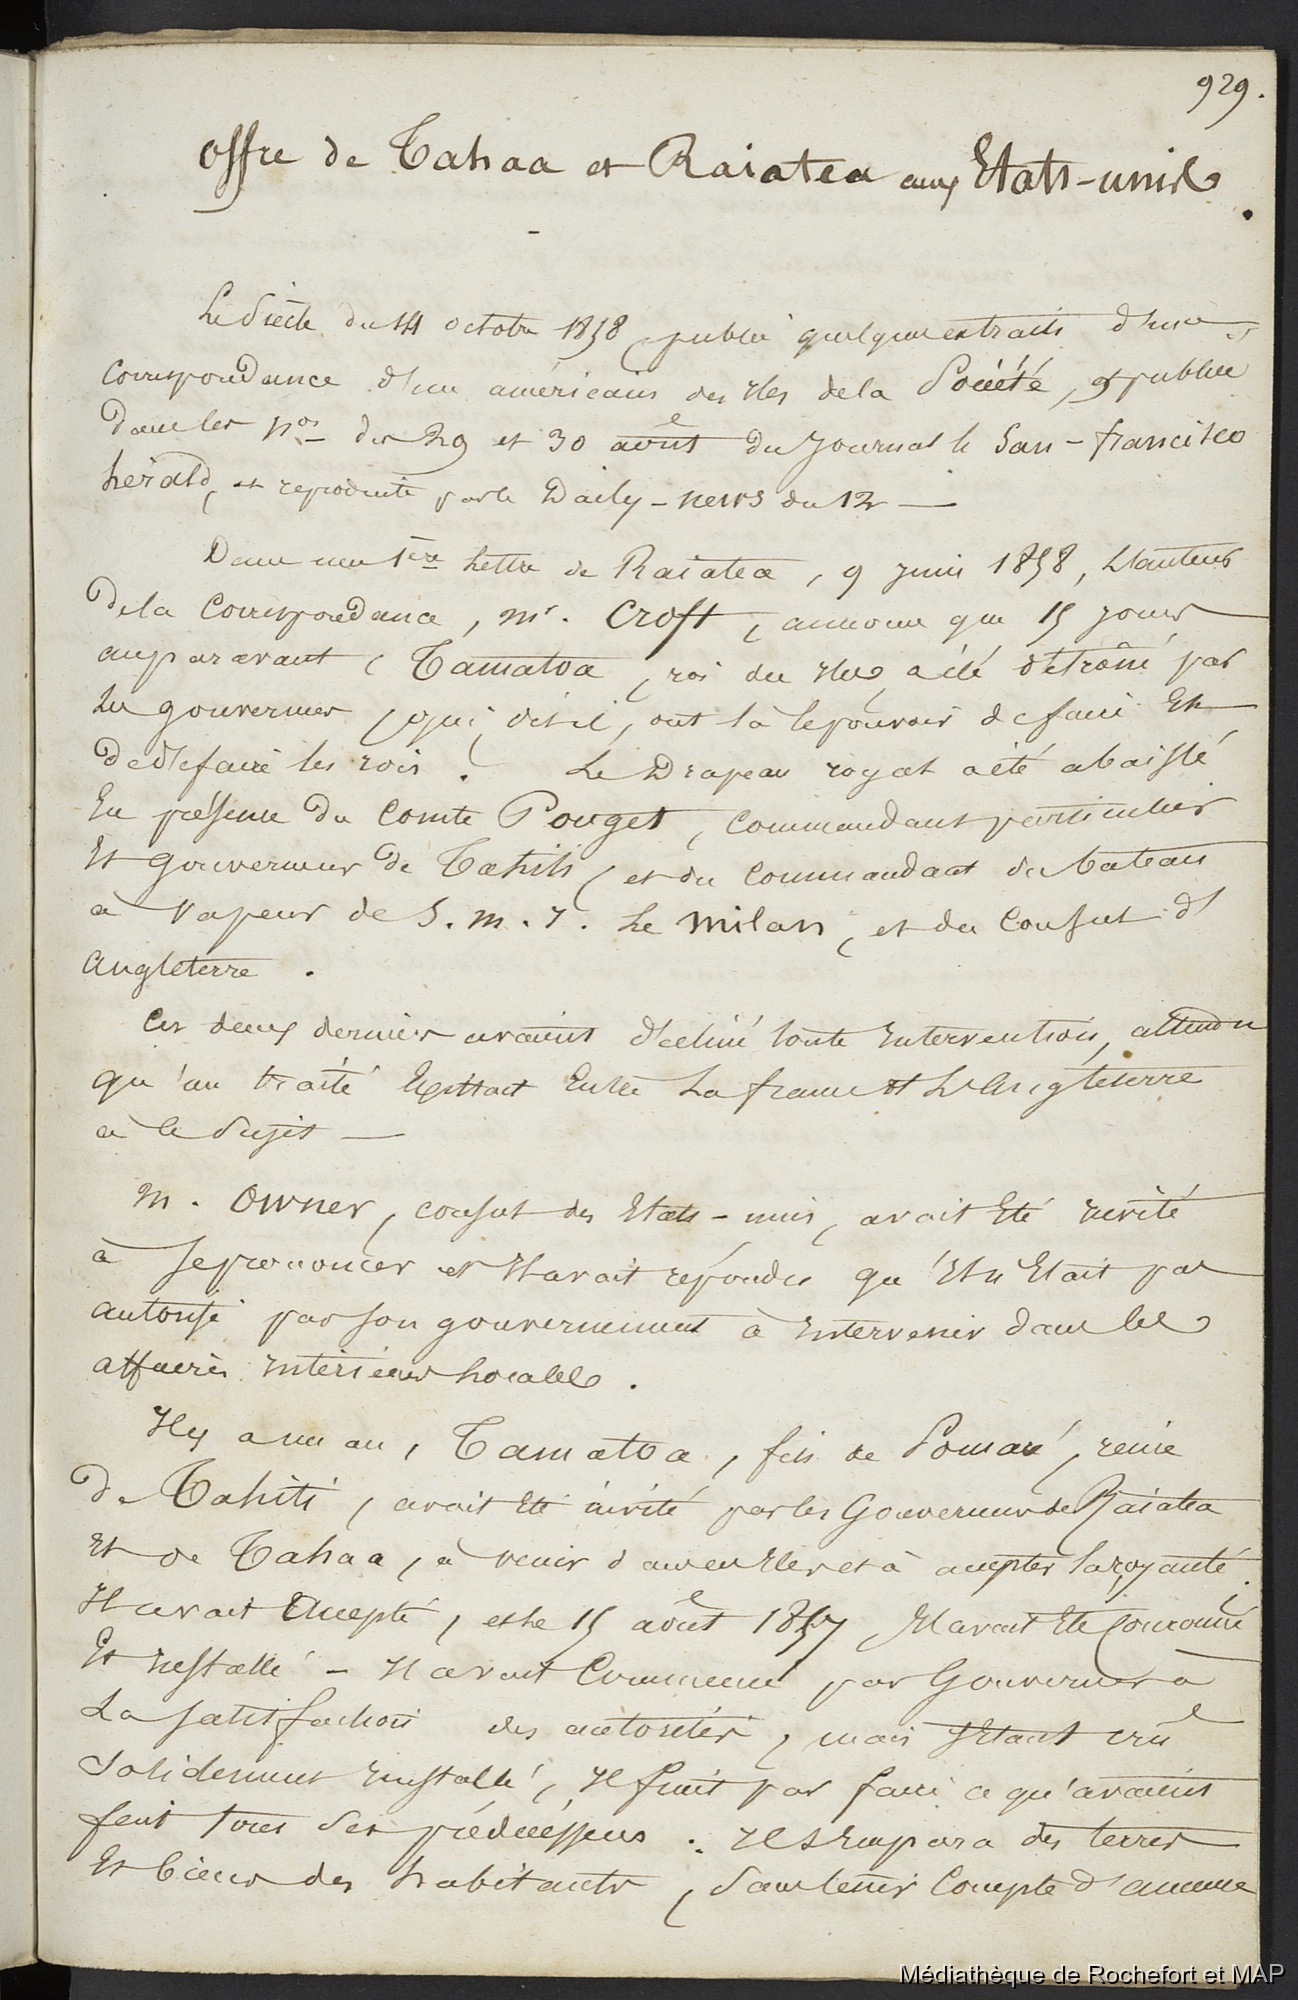 929.
Offre de Tahaa et Raiatea aux Etats-unis.
Le Siècle du 14 octobre 1858, publie quelques extraits d'une
correspondance d'un américain des Iles de la Société, et publiée
dans les nos des 29 et 30 août du Journal le San-francisco
hérald, et reproduite par le Daily-news du 12 —
Dans une 1ère lettre de Raiatea, 9 juin 1858, L'auteur
de la Correspondance, mr. Croft, annonce que 15 jours
auparavant, Tamatoa, roi des Iles, a été détrôné par
les gouverneurs, qui, dit-il, ont là le pouvoir de faire Et
de défaire les rois. Le Drapeau royal a été abaissé
En présence du Comte Pouget, Commandant particulier
Et gouverneur de Tahiti, et du Commandant du bateau
à vapeur de S.m.I. Le Milan, et du Consul d'
Angleterre.
Ces deux derniers avaient décliné toute Intervention, attendu
qu'un traité Existait Entre La france et L'Angleterre
à ce Sujet —
M. Owner, consul des Etats-unis, avait Eté invité
à se prononcer et Il avait répondu qu'Il n'Etait pas
autorisé par son gouvernement à Intervenir dans les
affaires Intérieures locales.
Il y a un an, Tamatoa, fils de Pomaré, reine
de Tahiti, avait Eté invité par les Gouverneurs de Raiatea
Et de Tahaa, à venir dans ces Iles et à accepter la royauté.
Il avait Accepté, et le 15 août 1857, Il avait Eté Couronné
Et Installé — Il avait Commencé par Gouverner à
La satisfaction des autorités, mais s'Etant cru
Solidement Installé, Il finit par faire ce qu'avaient
fait tous Ses prédécesseurs. Il s'Empara des terres
Et biens des habitants, Sans tenir Compte d'aucune
Médiathèque de Rochefort et MAP